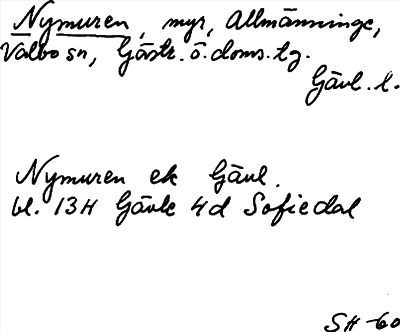 Nymuren, myr, Allmänninge,
Valbo sn, Gästr. ö. doms. tg.
Gävl. l.
Nymuren ek Gävl.
bl. 13H Gävle 4d Sofiedal
SH -60